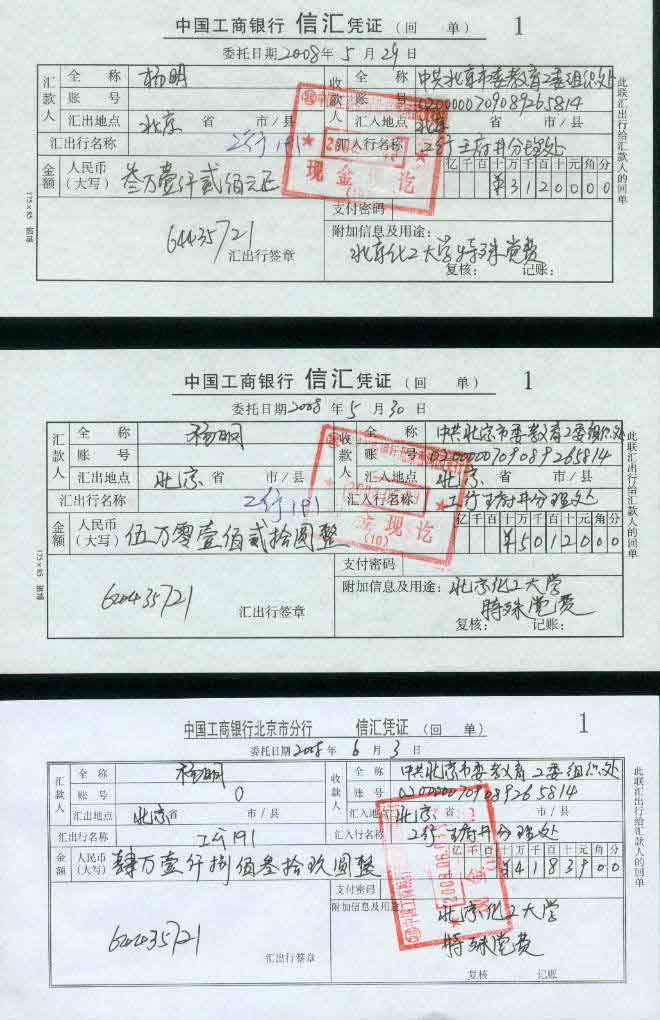 中国工商银行 信汇凭证 (回 单) 1
委托日期2008年 5 月 29 日
汇款人 全称 杨明 收款人 全称 中共北京市委教育工委组织处
账号 账号 0200000709089265814
汇出地点 北京 省 市/县 汇入地点 北京
汇出行名称 工行191 汇入行名称 工行王府井分理处
金额 人民币(大写) 叁万壹仟贰佰元正 亿千百十万千百十元角分 ¥3120000
现金讫
支付密码
64435721 汇出行签章 附加信息及用途:
北京化工大学特殊党费
复核: 记账:
此联汇出行给汇款人的回单
175×85
中国工商银行 信汇凭证 (回 单) 1
委托日期2008年 5 月 30 日
汇款人 全称 杨明 收款人 全称 中共北京市委教育工委组织处
账号 账号 0200000709089265814
汇出地点 北京 省 市/县 汇入地点 北京 省 市/县
汇出行名称 工行191 汇入行名称 工行王府井分理处
金额 人民币(大写) 伍万零壹佰贰拾圆整 亿千百十万千百十元角分 ¥5012000
金现讫
(10)
支付密码
620435721 汇出行签章 附加信息及用途: 北京化工大学
特殊党费
复核: 记账:
此联汇出行给汇款人的回单
175×85
中国工商银行北京市分行 信汇凭证 (回 单) 1
委托日期2008年 6 月 3 日
汇款人 全称 杨明 收款人 全称 中共北京市委教育工委组织处
账号 0 账号 0200000709089265814
汇出地点 北京省 市/县 汇入地点 北京 省 市/县
汇出行名称 工行191 汇入行名称 工行王府井分理处
金额 人民币(大写) 肆万壹仟捌佰叁拾玖圆整 亿千百十万千百十元角分 ¥4183900
支付密码
620235721 汇出行签章 附加信息及用途: 北京化工大学
特殊党费
复核 记账
此联汇出行给汇款人的回单